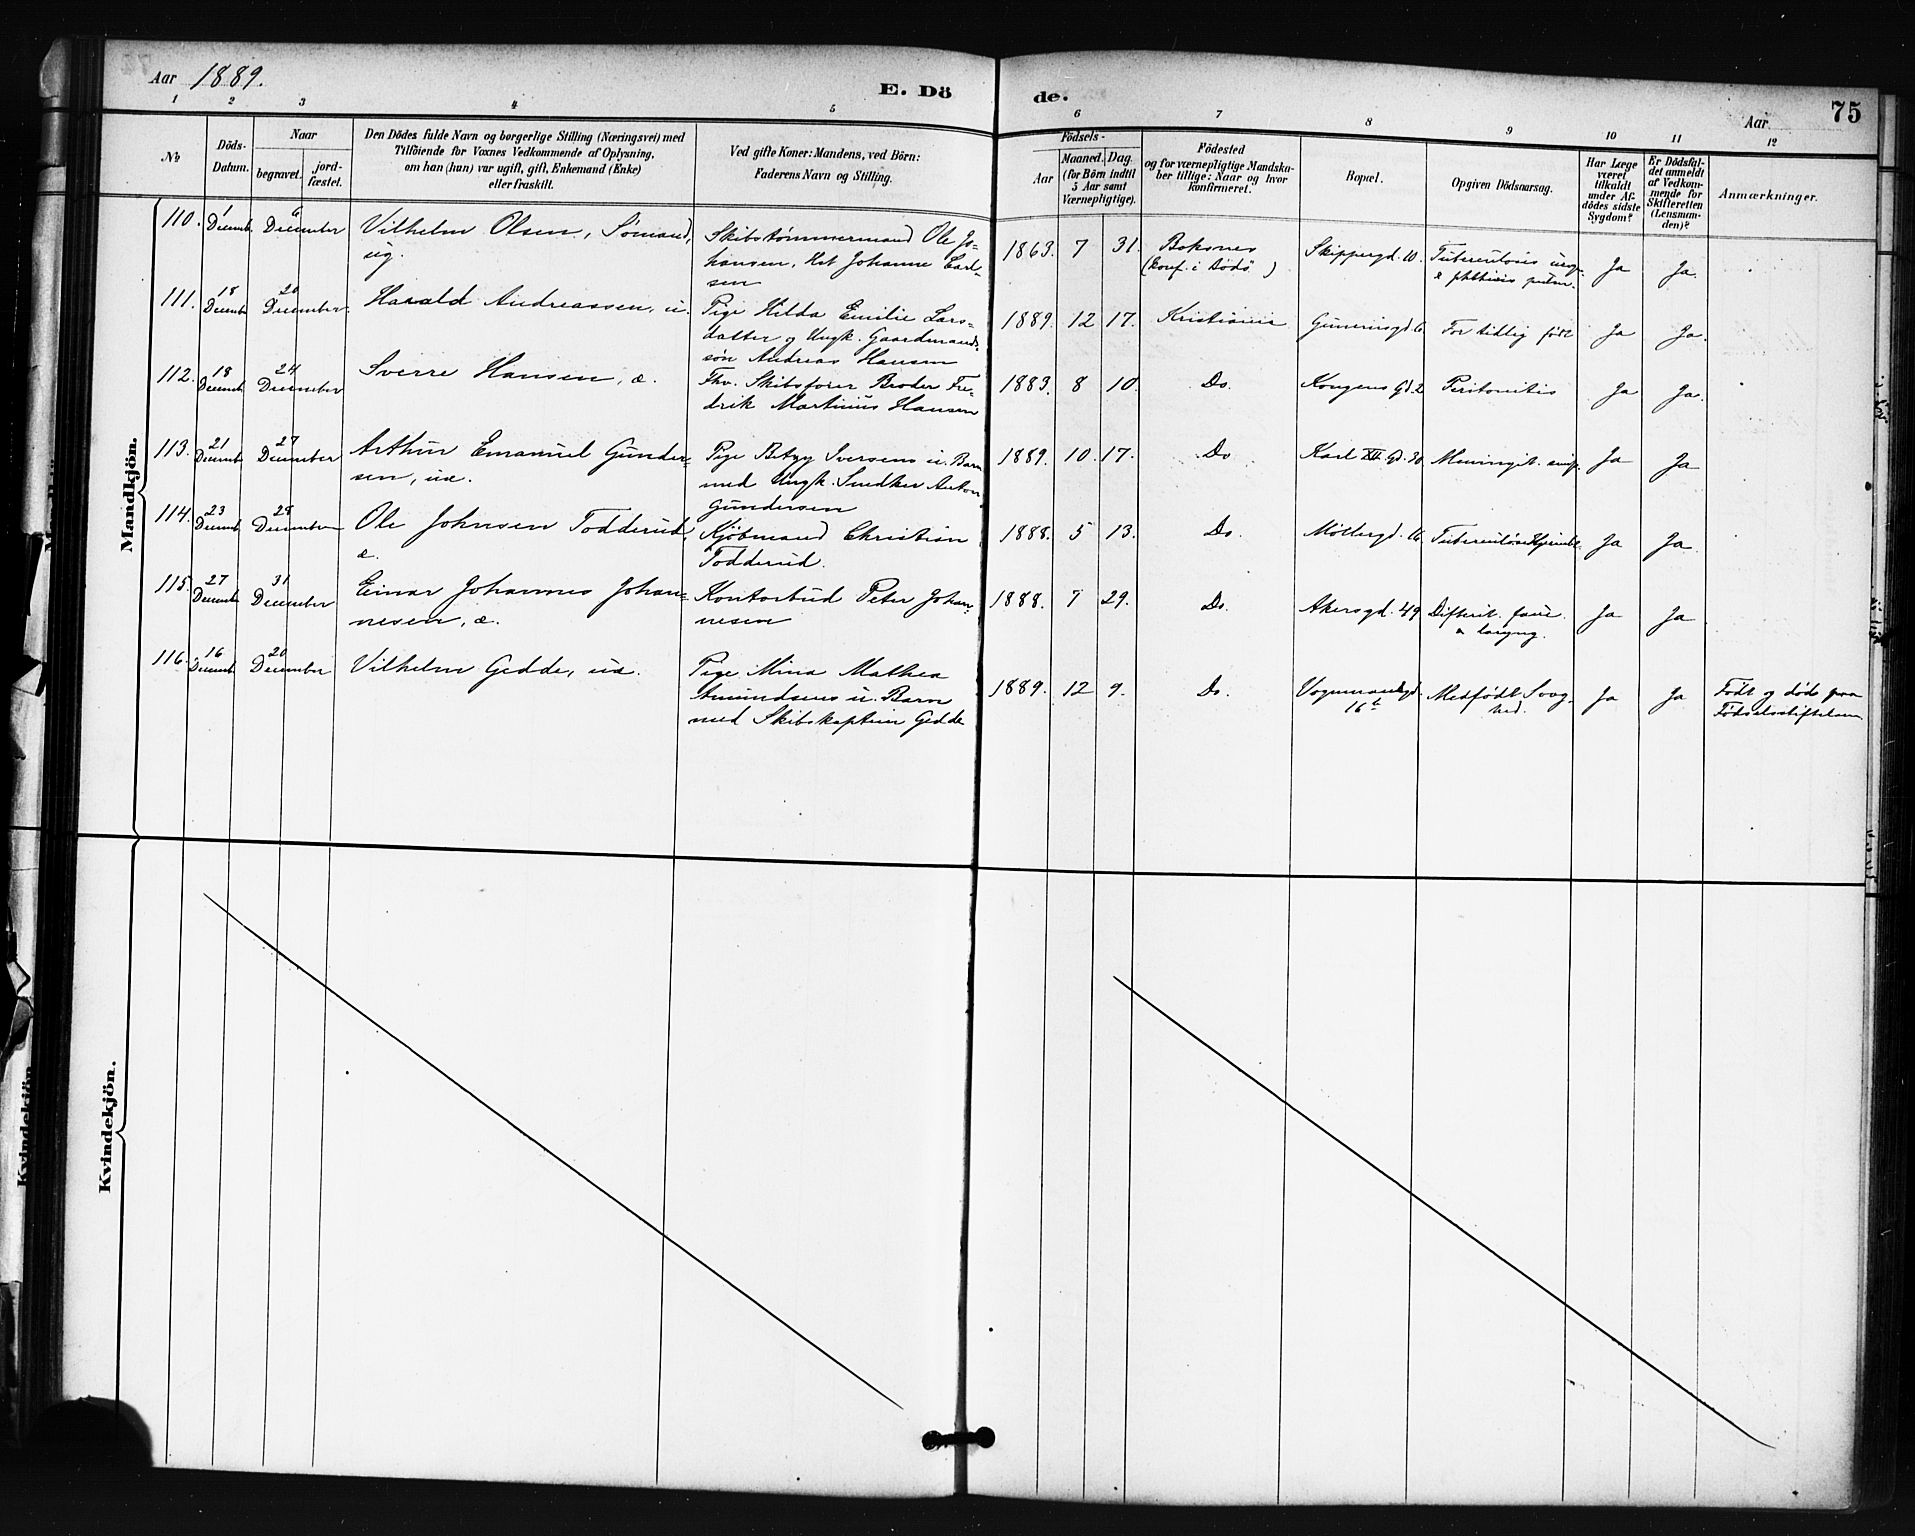 Aar 1889.
E. Dö
de.
Aar
75
1 2 3 4 5 6 7 8 9 10 11 12
№
Döds-
Datum.
Naar
begravet.
jord-
fæstet.
Den Dödes fulde Navn og borgerlige Stilling (Næringsvei) med
Tilföiende for Voxnes Vedkommende af Oplysning,
om han (hun) var ugift, gift, Enkemand (Enke)
eller fraskilt.
Ved gifte Koner: Mandens, ved Börn:
Faderens Navn og Stilling.
Födsels-
Aar
Maaned. Dag.
(for Börn indtil
5 Aar samt
Værnepligtige).
Födested
og for værnepligtige Mandska-
ber tillige: Naar og hvor
konfirmeret.
Bopæl.
Opgiven Dödsaarsag.
Har Læge
været
tilkaldt
under Af-
dödes sidste
Sygdom?
Er Dödsfal-
det anmeldt
af Vedkom-
mende for
Skifteretten
(Lensman-
den)?
Anmærkninger.
Mandkjön.
110. 1 Decemb. 6 December Vilhelm Olsen, Sömand, Skibstömmermand Ole Jo- 1863. 7 31. Boksnes Skippergd. 10. Tuberculosis Ja Ja.
ug. hansen, Hst Johanne Carl- (konf. i Bodö ) & phthisis pulm.
sen
111. 18 Decemb 20 December. Harald Andreassen, u. Pige Hilda Emilie Lars- 1889. 12 17. Kristiania Grünersgd. 6. For tidlig födt Ja Ja.
datter og Ungk. Gaardmands-
sön Andreas Hansen
112. 18 Decemb. 24 December Sverre Hansen, æ. Fhv. Skibsförer Broder Fre- 1883. 8 10. Do. Kongens Gd. 2 Peritonitis Ja Ja.
drik Martinius Hansen
113. 21 Decemb. 27 December Arthur Emanuel Gunder- Pige Betzy Sversens u. Barn 1889. 10. 17. Do Karl XII Gd. 30 Meningit. simp. Ja Ja
sen, uæ. med Ungk. Snedker Anton
Gundersen
114. 23 Decemb 28 December Ole Johnsen Todderud, Kjöbmand Christian 1888. 5 13. Do. Möllergd. 16 Ja Ja.
æ. Todderud.
115. 27 Decemb 31 December Einar Johannes Johan- Kontorbud Peter Johan- 1888. 7 29. Do. Akersgd. 49 Difterit. fauc. Ja Ja
nesen, æ. nesen & laryng.
116. 16 Decemb 20 December Vilhelm Gedde, uæ. Pige Mina Mathea 1889. 12 9. Do. Vognmandsgd. Medfödt Svag- Ja Ja Födt og död paa
Amundsens u. Barn 16 hed. Födselsstiftelsen
med Skibskaptein Gedde
Kvindekjön.